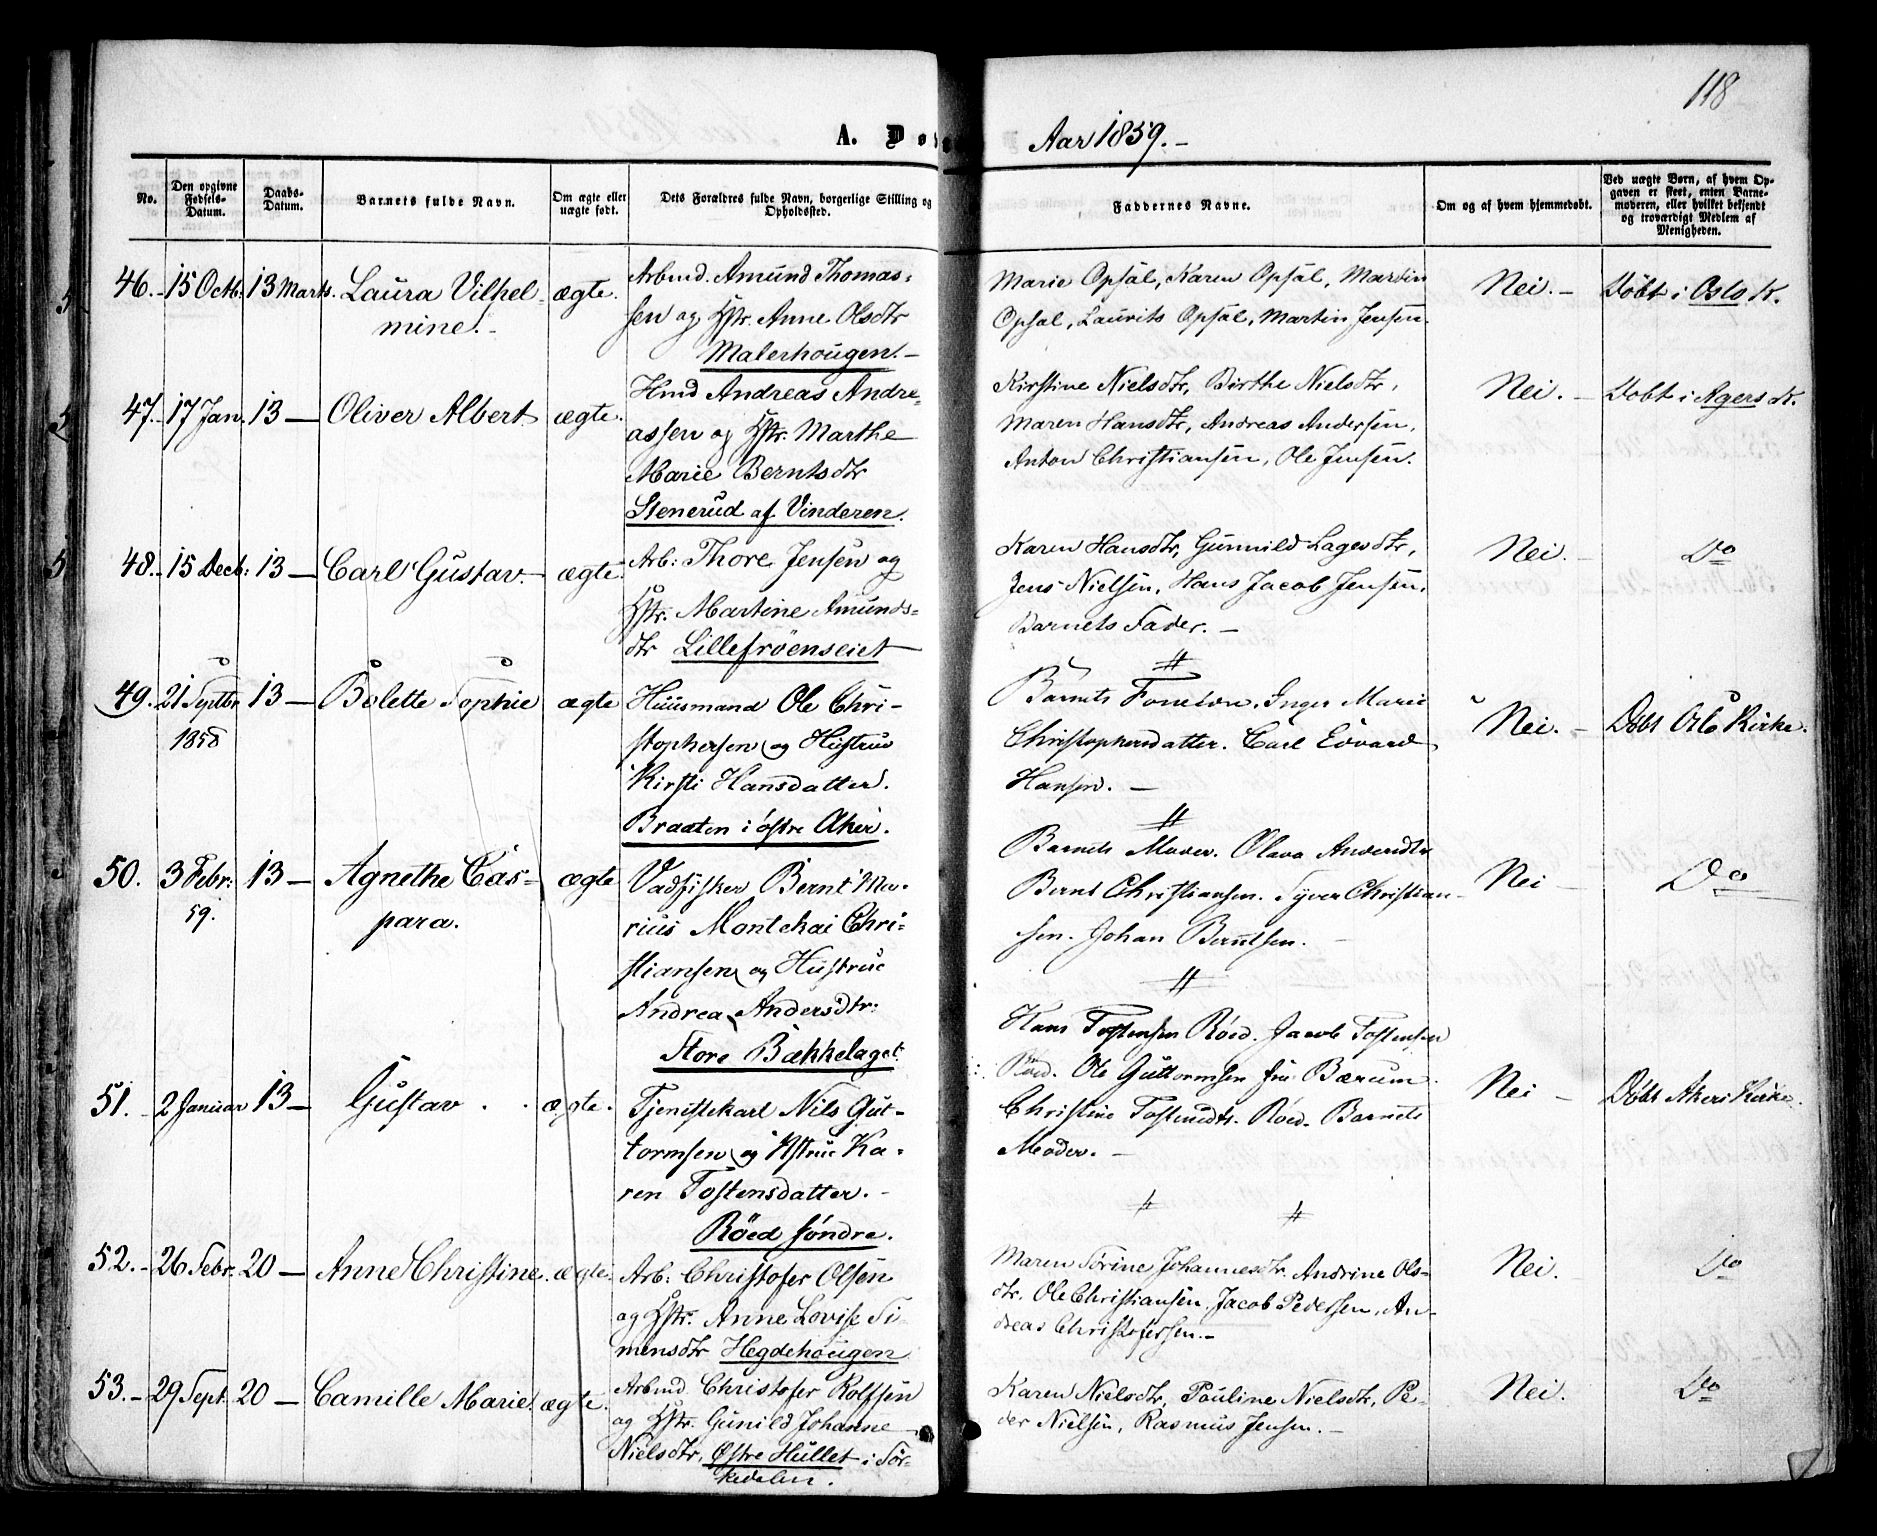 118
A. Dø Aar 1859.-
No.
Den opgivne Fødsels-Datum.
Daabs-Datum.
Barnets fulde Navn.
Om ægte eller uægte født.
Dets Forældres fulde Navn, borgerlige Stilling og Opholdssted.
Faddernes Navne.
Om og af hvem hjemmedøbt.
Ved uægte Børn, af hvem Opgaven er skeet, enten Barnemoderen, eller hvilket bekjendt og troværdigt Medlem af Menigheden.
46. 15 Octb. 13 Marts. Laura Vilhel- ægte.
mine.
Arbmd. Amund Thomas-
sen og Hstr. Anne Olsdtr
Malerhougen.
Marie Opsal, Karen Opsal, Martin
Opsal, Laurits Opsal, Martin Jensen.
Nei. Døbt i Oslo K.
47. 17 Jan. 13 — Oliver Albert ægte.
Hmd Andreas Andre-
assen og Hstr. Marthe
Marie Berntsdtr
Stenerud af Vinderen.
Kirstine Nielsdtr, Birthe Nielsdtr,
Maren Hansdtr, Andreas Andersen,
Anton Christiansen, Ole Jensen.
Nei. Døbt i Agers K.
48. 15 Decb. 13 — Carl Gustav. ægte.
Arb: Thore Jensen og
Hstr. Martine Amunds-
dtr Lillefrøenseiet
Karen Hansdtr, Gunnild Lagesdtr,
Jens Nielsen, Hans Jacob Jensen,
Barnets Fader.
Nei. Do
49. 21 Septbr 13 — Bolette Sophie ægte
1858
Huusmand Ole Chri-
stophersen og Hustrue
Kirsti Hansdatter.
Braaten i østre Aker.
Barnets Forældre, Inger Marie
Christophersdatter. Carl Edvard
Hansen.
Nei. Døbt Oslo Kirke.
50. 3 Febr: 13 — Agnethe Cas- ægte
59. para.
Vadfisker Bernt Ma-
rius Montekai Chri-
stiansen og Hustrue
Andrea Andersdtr:
Store Bækkelaget.
Barnets Moder. Olava Andersdtr
Bernt Christiansen. Syver Christian-
sen. Johan Berntsen.
Nei Do
51. 2 Januar 13 — Gustav ægte.
Tjenestekarl Nils Gut-
tormsen og Hstrue Ka-
ren Tostensdatter.
Röed søndre.
Hans Tostensen Röed. Jacob Tostensen
Röed. Ole Guttormsen fra Bærum.
Christine Tostensdtr. Röed. Barnets
Moder.
Nei Døbt Akers Kirke.
52. 26 Febr. 20 — Anne Christine. ægte.
Arb: Christofer Olsen
og Hstr. Anne Lovise Si-
mensdtr Hegdehougen
Maren Sørine Johannesdtr. Andrine Ols-
dtr. Ole Christiansen, Jacob Pedersen, An-
dreas Christofersen.-
Nei. Do
53. 29 Sept. 20 — Camille Marie. ægte.
Arbmd. Christofer Rolfsen
og Hstr. Gunild Johanne
Nielsdtr, Østre Hullet i Sør-
kedalen.
Karen Nielsdtr, Pauline Nielsdtr, Pe-
der Nielsen, Rasmus Jensen.-
Nei. Do